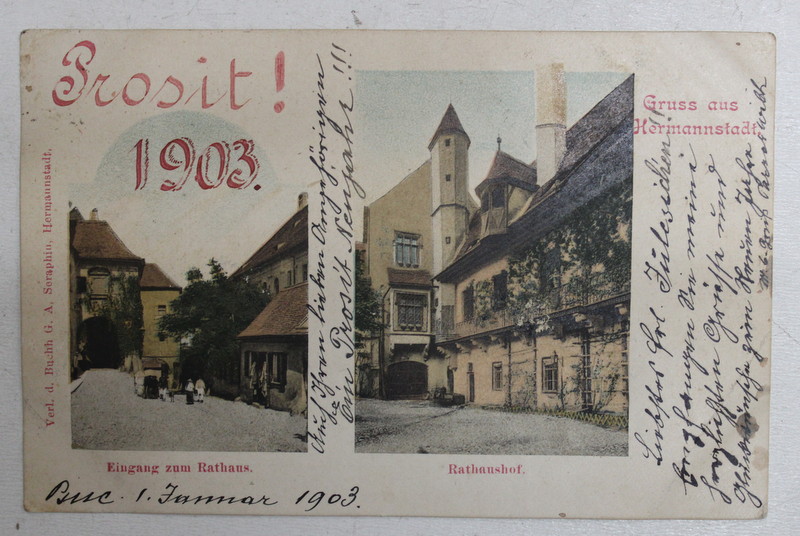 Prosit!
1903.
Gruss aus
Hermannstadt.
Verl. d. Buchh G. A. Seraphin, Hermannstadt.
Eingang zum Rathaus.
Rathaushof.
Buc. 1. Januar 1903.
Liebstes Frl. Julcsichen!!
Empfangen Sie meine
herzlichsten Grüsse und
Glückwünsche zum Neuen Jahre
Auch Ihren lieben Angehörigen
ein Prosit Neujahr!!!